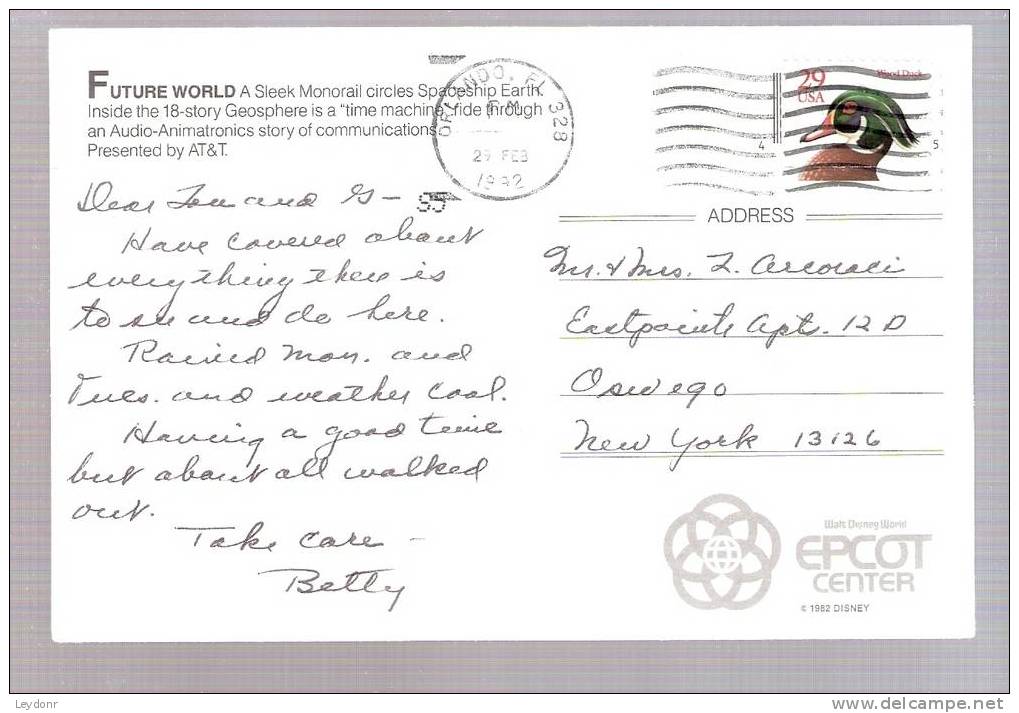 FUTURE WORLD A Sleek Monorail circles Spaceship Earth.
Inside the 18-story Geosphere is a "time machine" ride through
an Audio-Animatronics story of communications.
Presented by AT&T.
ORLANDO, FL 328
PM
29 FEB
1992
29
USA
Wood Duck
4
5
Dear Lou and G-
Have covered about
everything there is
to see and do here.
Rained Mon. and
Tues. and weather cool.
Having a good time
but about all walked
out.
Take care -
Betty
ADDRESS
Mr. & Mrs. L.
Eastpointe Apt. 12 D
Oswego
New York 13126
Walt Disney World
EPCOT
CENTER
© 1982 DISNEY
Leydorr
delcampe.net